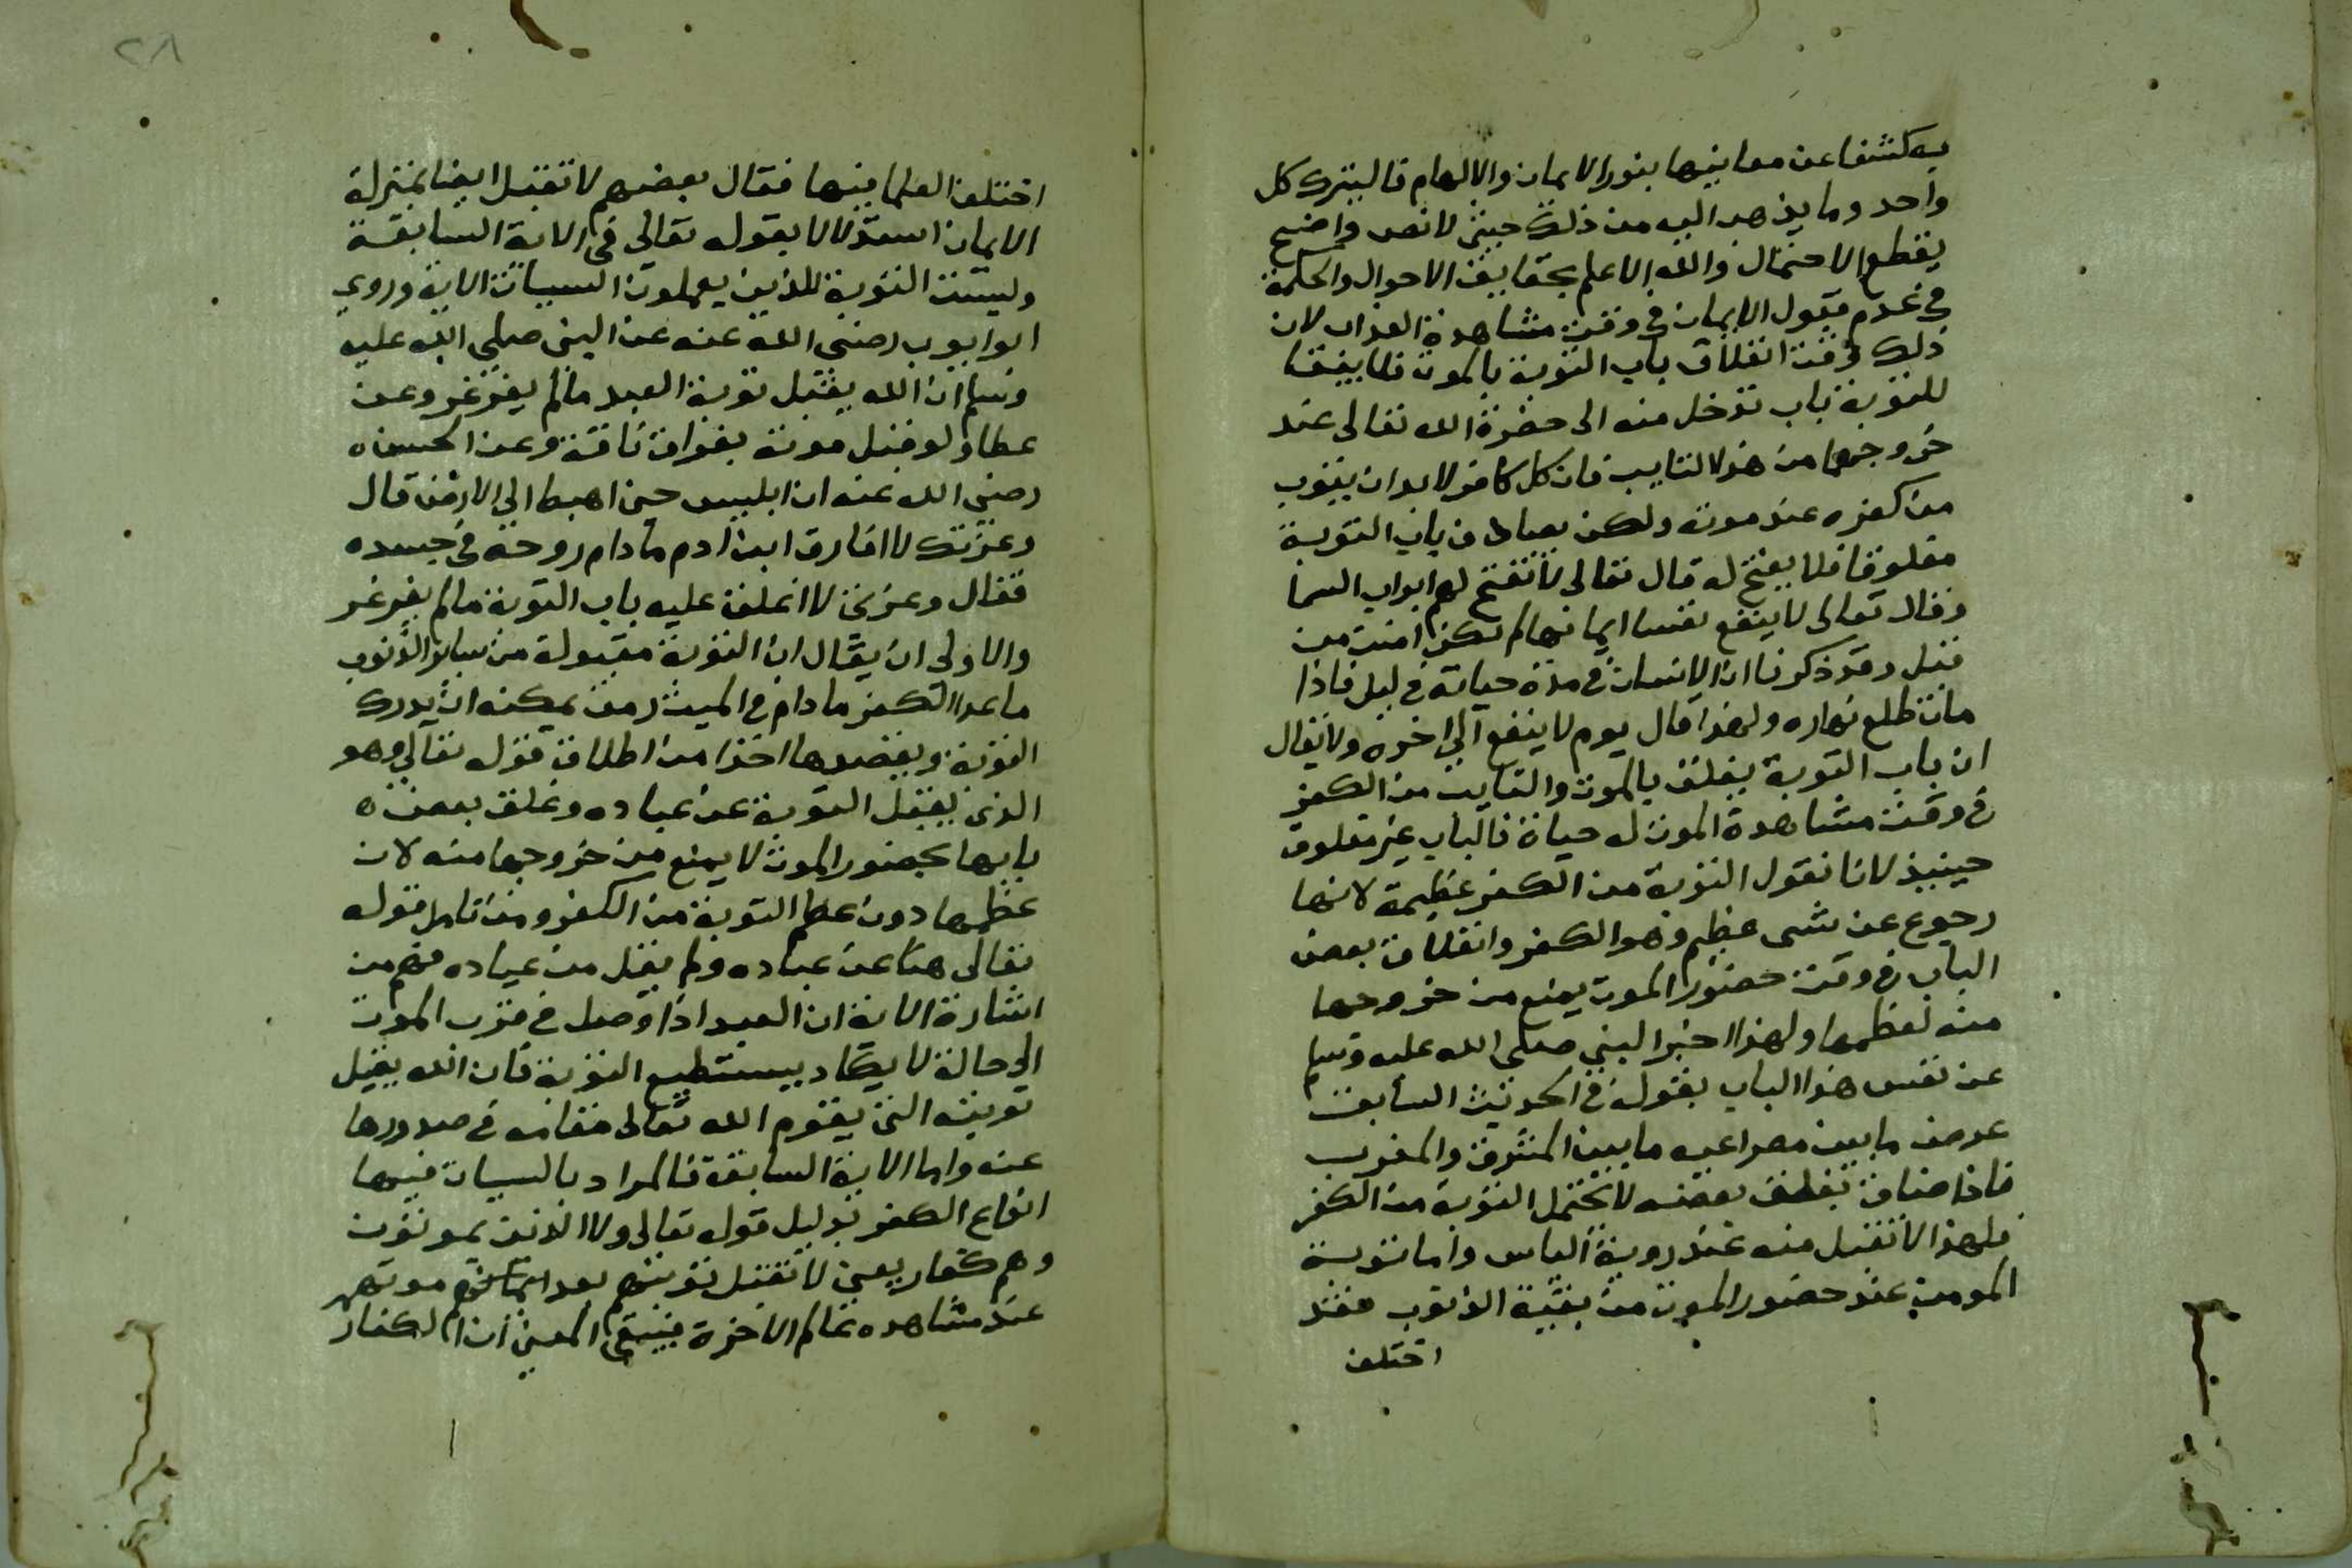 به كشفا عن معانيها بنور الايمان والالهام فاليترك كل
واحد وما يذهب اليه من ذلك حيث لا نص واضح
يقطع الاحتمال والله الاعلم بحقايق الاحوال والحكمة
في عدم قبول الايمان في وقت مشاهدة العذاب لان
ذلك وقت انغلاق باب التوبة بالموت فلا يبقا
للتوبة باب تدخل منه الى حضرة الله تعالى عند
خروجها من هذا التايب فان كل كافر لا بد ان يتوب
من كفره عند موته ولكن يصادف باب التوبة
مغلوقا فلا يفتح له قال تعالى لا تفتح لهم ابواب السما
وقال تعالى لا ينفع نفسا ايمانها لم تكن امنت من
قبل وقد ذكرنا ان الانسان في مدة حياته في ليل فاذا
مات طلع نهاره ولهذا قال يوم لا ينفع الى اخره ولا يقال
ان باب التوبة يغلق بالموت والتايب من الكفر
في وقت مشاهدة الموت له حياة فالباب غير مغلوق
حينيذ لانا نقول التوبة من الكفر عظيمة لانها
رجوع عن شى عظيم وهو الكفر وانغلاق بعض
الباب في وقت حضور الموت يمنع من خروجها
منه لعظمها ولهذا اخبر النبي صلى الله عليه وسلم
عن نفس هذا الباب بقوله في الحديث السابق
عرض ما بين مصراعيه ما بين المشرق والمغرب
فاذا ضاق بغلق بعضه لا تحتمل التوبة من الكفر
فلهذا لا تقبل منه عند روية الباس واما توبة
المومن عند حضور الموت من بقية الذنوب فقد
اختلف
٢٨
اختلف العلما فيها فقال بعضهم لا تقبل ايضا بمنزلة
الايمان استدلالا بقوله تعالى في الاية السابقة
وليست التوبة للذين يعملون السيات الاية وروي
ابو ايوب رضي الله عنه عن النبي صلي الله عليه
وسلم ان الله يقبل توبة العبد ما لم يغرغر وعن
عطا ولو قبل موته بفواق ناقة وعن الحسن ه
رضي الله عنه ان ابليس حين اهبط الي الارض قال
وعزتك لا افارق ابن ادم ما دام روحه في جسده
فقال وعزتي لا اغلق عليه باب التوبة ما لم يغرغر
والاولى ان يقال ان التوبة مقبولة من ساير الذنوب
ما عدا الكفر ما دام في الميت رمق يمكنه ان يدرك
التوبة ويقصدها اخذا من اطلاق قوله تعالي وهو
الذي يقبل التوبة عن عباده وغلق بعض ه
بابها بحضور الموت لا يمنع من خروجها منه لان
عظمها دون عظم التوبة من الكفر ومن تامل قوله
تعالى هنا عن عباده ولم يقل من عباده فهم من
اشارة الاية ان العبد اذا وصل في قرب الموت
الى حالة لا يكاد يستطيع التوبة فان الله يقبل
توبته التي يقوم الله تعالى مقامه في صدورها
عنه واما الاية السابقة فالمراد بالسيات فيها
انواع الكفر بدليل قوله تعالى ولا الذين يموتون
وهم كفار يعني لا تقبل توبتهم بعد موتهم
عند مشاهده عالم الاخرة فيبقى المعنى ان الكفار